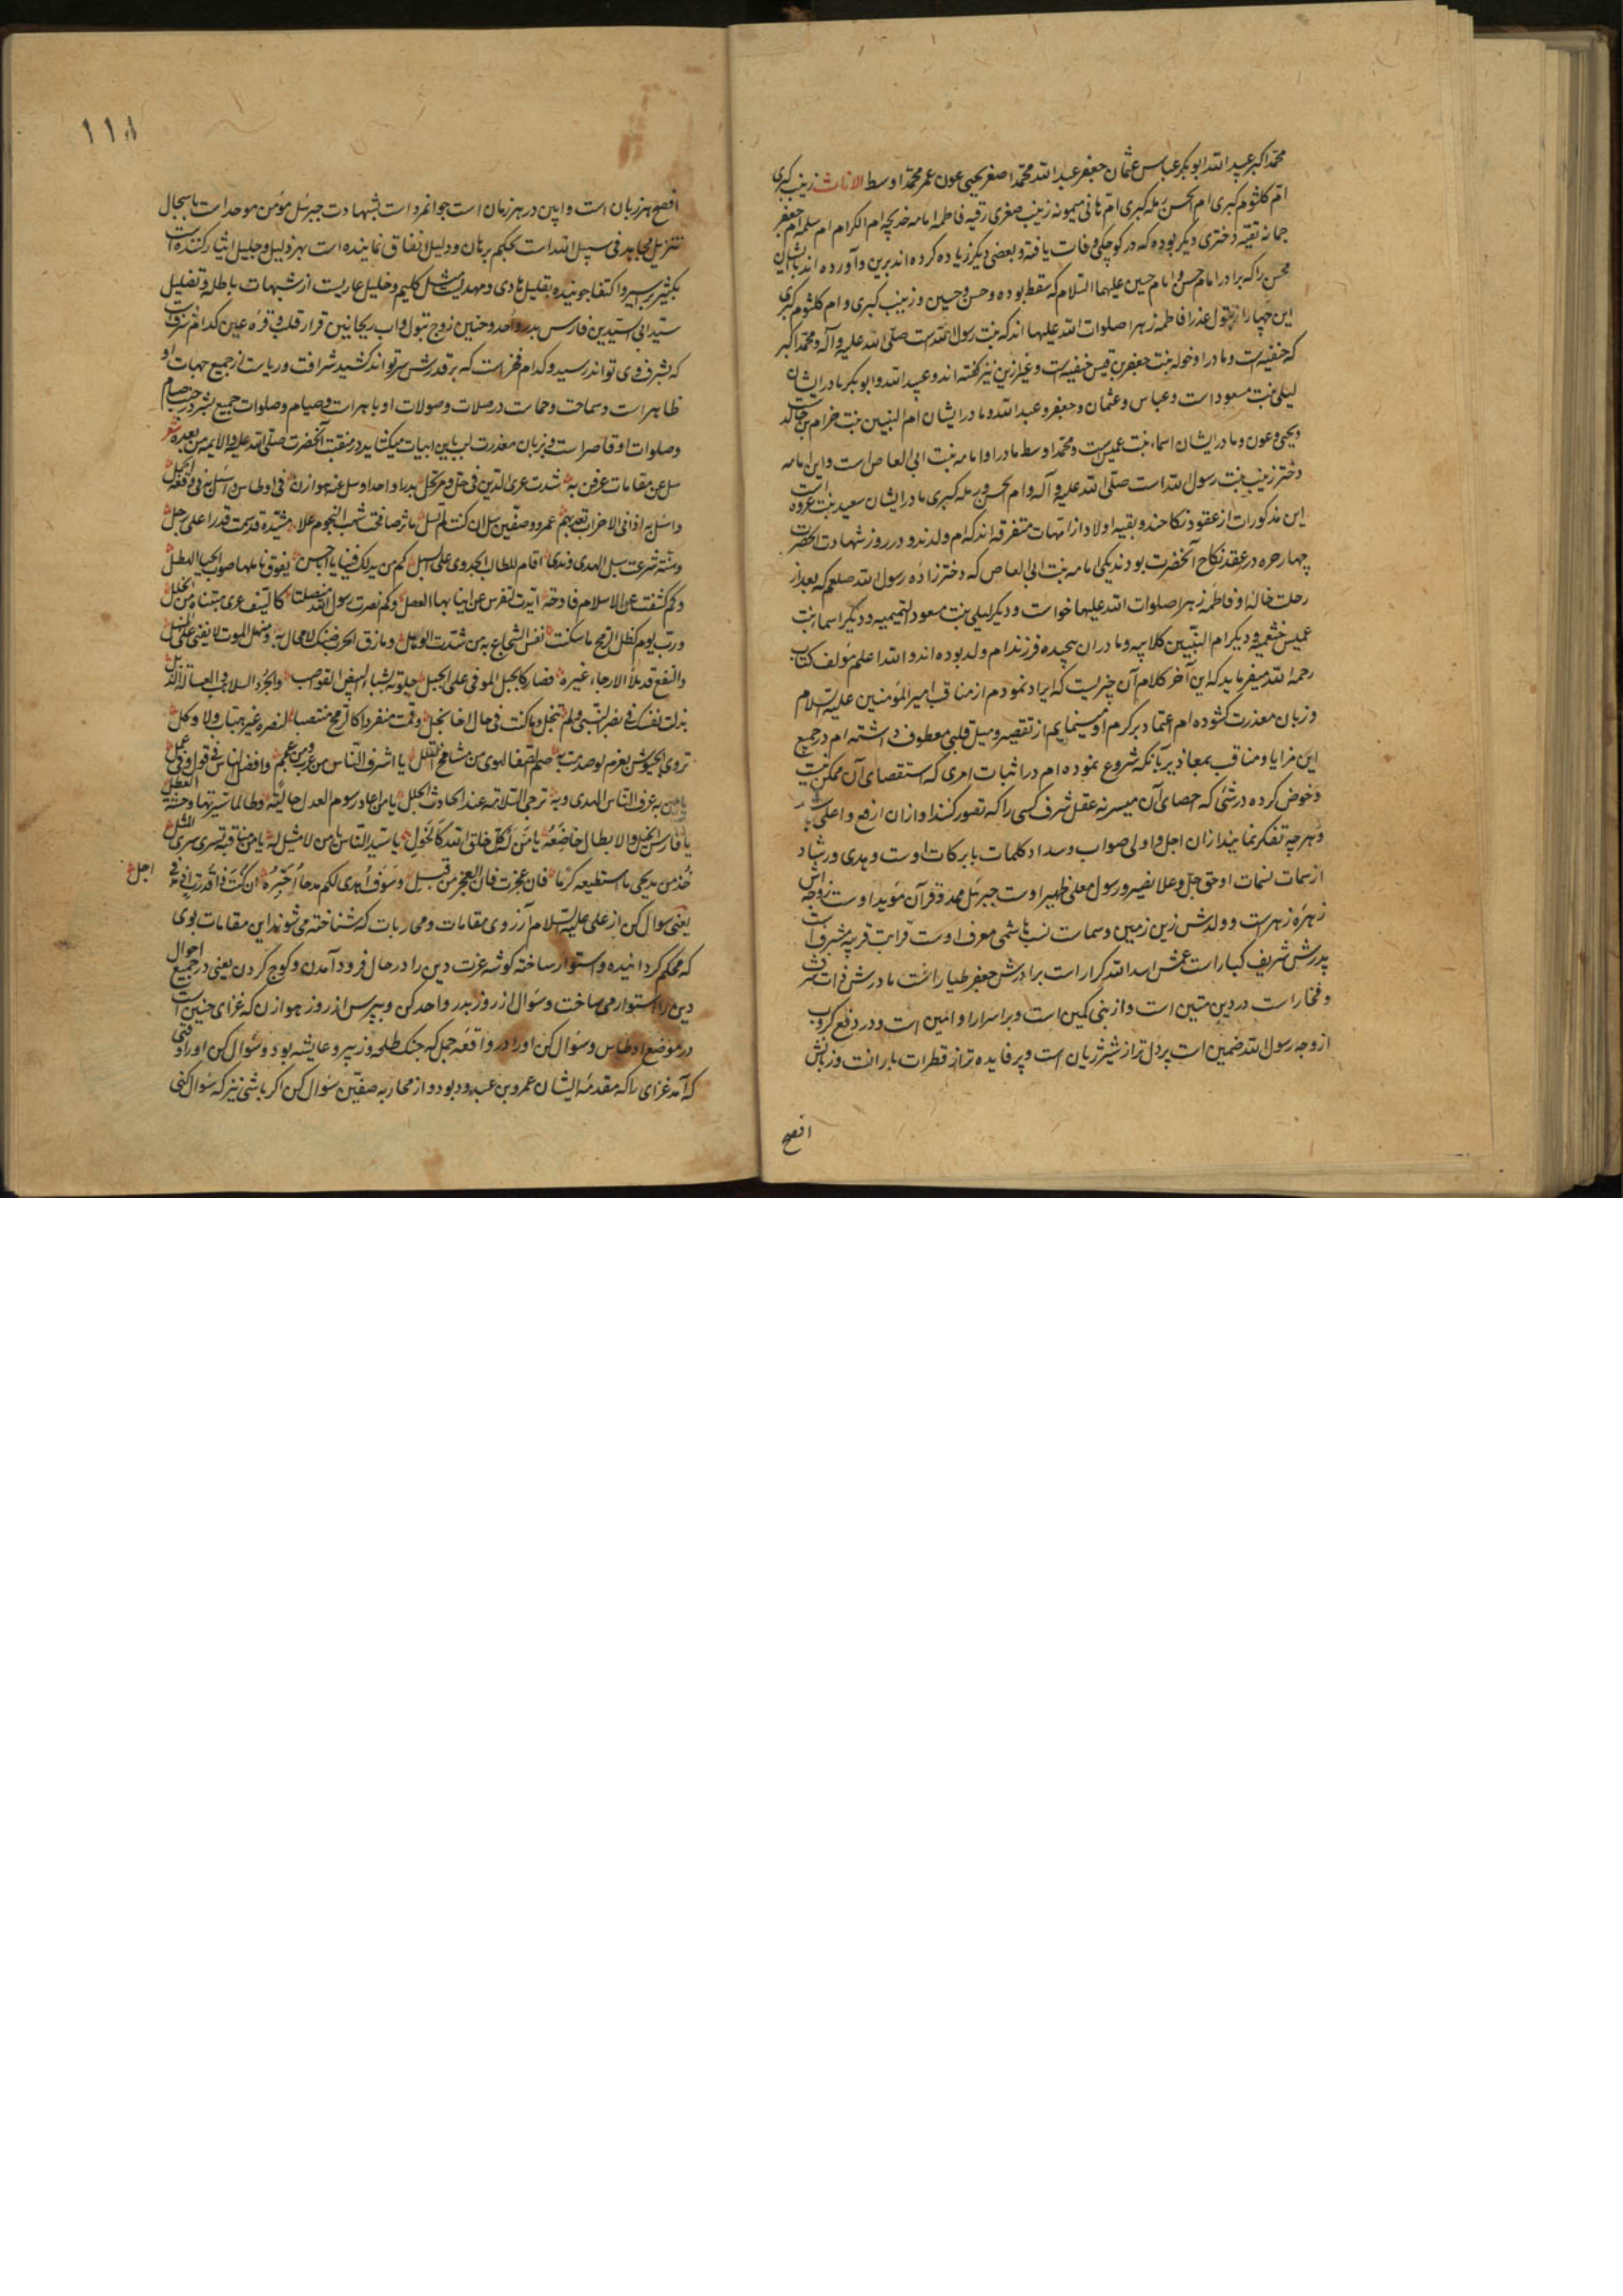 محمد اکبر عبید الله ابوبکر عباس عثمان جعفر عبد الله محمد اصغر یحیی عون عمر محمد اوسط الاناث زینب کبری
ام کلثوم کبری ام الحسن رمله کبری ام هانی میمونه زینب صغری رقیه فاطمه امامه خدیجه ام الکرام ام سلمه ام جعفر
جمانه تقیه دختری دیگر بوده که در کوچکی وفات یافته و بعضی دیگر زیاده کرده اند برین و آورده اند بایشان
محسن را که برادر امام حسن و امام حسین علیهما السلام که سقط بوده و حسن و حسین و زینب کبری و ام کلثوم کبری
این چهار از بتول عذرا فاطمه زهرا صلوات الله علیها اند که بنت رسول الله است صلی الله علیه وآله و محمد اکبر
که حنفیه است و مادر او خوله بنت جعفر بن قیس حنفیه است و غیر ازین نیز گفته اند و عبید الله و ابوبکر مادر ایشان
لیلی بنت مسعود است و عباس و عثمان و جعفر و عبد الله و مادر ایشان ام البنین بنت حزام بن خالد است
و یحیی و عون و مادر ایشان اسماء بنت عمیس است و محمد اوسط مادر او امامه بنت ابی العاص است و این امامه
دختر زینب بنت رسول الله است صلی الله علیه وآله و ام الحسن و رمله کبری مادر ایشان سعید بنت عروه است
این مذکورات از عقود نکاحند و بقیه اولاد از امهات متفرقه اند که ام ولدند و در روز شهادت آنحضرت
چهار حره در عقد نکاح آنحضرت بودند یکی امامه بنت ابی العاص که دختر زاده رسول الله صلعم که بعد از
رحلت خاله او فاطمه زهرا صلوات الله علیها خواست و دیگر لیلی بنت مسعود التمیمیه و دیگر اسماء بنت
عمیس خثعمیه و دیگر ام البنین کلابیه و مادران هیجده فرزند ام ولد بوده اند والله اعلم مؤلف کتاب
رحمه الله میفرماید که این آخر کلام آن چیزیست که ایراد نمودم از مناقب امیر المؤمنین علیه السلام
و زبان معذرت گشوده ام اعتماد بر کرم او مینمایم از تقصیر و میل قلبی معطوف داشته ام در جمیع
این مزایا و مناقب بمعاذیر بآنکه شروع نموده ام در اثبات امری که استقصای آن ممکن نیست
و خوض کرده در شئ که احصای آن میسر نه عقل شرف کسی را که تصور کند او ازان ارفع و اعلی است
و هر چه تفکر نمایند ازان اجل و اولی صواب و سداد کلمات با برکات اوست و هدی و رشاد
از سمات نسمات او حق جل و علا نصیر و رسول معلی ظهیر اوست جبرئیل ممد و قرآن مؤید اوست زوجه اش
زهره زهراست و ولدش زین زمین و سمات نسب هاشمی معرف اوست قرابت قریبه مشرف است
پدرش شریف کبار است عمش اسد الله کرار است برادرش جعفر طیار است مادرش ذات شرف
و فخار است در دین متین است و از بنی مکین است و بر اسرار او امین است و در دفع کروب
از وجه رسول الله ضمین است پر دل تر از شیر ژیان است و پر فایده تر از قطرات باران است و زبانش
افصح
۱۱۸
افصح هر زبان است و این در هر زمان است جوانمرد است بشهادت جبرئیل مؤمن موحد است باسجال
تنزیل مجاهد فی سبیل الله است بحکم برهان و دلیل انفاق نماینده است بهر ذلیل و جلیل ایثار کننده است
بکثیر بر اسیر و اکتفا جوینده بقلیل هادی و مهدیست مثل کلیم و خلیل عاریست از شبهات باطله و تضلیل
سید ابی السیدین فارس بدر و احد و حنین زوج بتول و اب ریحانتین قرار قلب و قره عین کدام شرفست
که بشرف وی تواند رسید و کدام فخر است که بر قدرش سر تواند کشید شرافت و ریاست از جمیع جهات او
ظاهر است و سماحت و حماست در صلات و صولات او باهر است و صیام و صلوات جمیع بشر در جنب صیام
و صلوات او قاصر است و بزبان معذرت لب باین ابیات میگشاید در منقبت آنحضرت صلی الله علیه و الایمه من بعده شعر
سل عن مقامات عرفن به شدت عری الدین فی حل و مرتحل بدرا واحدا وسل عنه هوازن فی اوطاس واسئل به فی وقعة الجمل
واسئل به اذ اتی الاحزاب یقدمهم عمرو و صفین سل ان کنت لم تسل مآثر صافحت شهب النجوم علا مشیدة قد سمت قدرا علی زحل
وسنة شرعت سبل الهدی وندی اقام للطالب الجدوی علی السبل کم من ید لک فینا یا ابا حسن یفوق نائلها صوب الحیا الهطل
وکم کشفت عن الاسلام فادحة ابدت لتفرس عن انیابها العصل وکم نصرت رسول الله منصلتا کالسیف عری متناه من الخلل
ورب یوم کظل الرمح ما سکنت نفس الشجاع به من شدة الوهل ومازق الحرب ضنک لا مجال به ومنهل الموت لا یغنی علی النهل
والنقع قد ملأ الارجاء عثیره فصار کالجبل الموفی علی الجبل جلوته بشبا البیض القواضب والجرد السلاهب والعسالة الذبل
بذلت نفسک فی نصر النبی ولم تبخل وما کنت فی حال اخا بخل وقمت منفردا کالرمح منتصبا لنصره غیر هیاب ولا وکل
تردی الجیوش بعزم لو صدمت به صم الصفا لهوی من شامخ القلل یا اشرف الناس من عرب ومن عجم وافضل الناس فی قول وفی عمل
یا من به عرف الناس الهدی وبه ترجی السلامة عند الحادث الجلل یا من اعاد رسوم العدل حالیة وطالما سترتها وحشة العطل
یا فارس الخیل والابطال خاضعة یا من له کل خلق الله کالخول یا سید الناس یا من لا مثیل له یا من مناقبه تسری سری المثل
خذ من مدیحی ما استطیعه کرما فان عجزت فان العجز من قبلی وسوف اهدی لکم مدحا احبره ان کنت ذا قدرة او مد فی اجلی
یعنی سوال کن از علی علیه السلام از روی مقامات و محاربات که شناخته می شوند این مقامات بوی
که محکم گردانیده و استوار ساخته گوشه عزت دین را در حال فرود آمدن و کوچ کردن یعنی در جمیع احوال
دین را استوار می ساخت و سؤال از روز بدر و احد کن و بپرس از روز هوازن که غزای حنین است
در موضع اوطاس و سؤال کن او را در واقعه جمل که جنگ طلحه و زبیر و عایشه بود و سؤال کن او را وقتی
که آمد غزای را که مقدمه ایشان عمرو بن عبدود بود و از محاربه صفین سؤال کن اگر باشی نیز که سؤال کنی